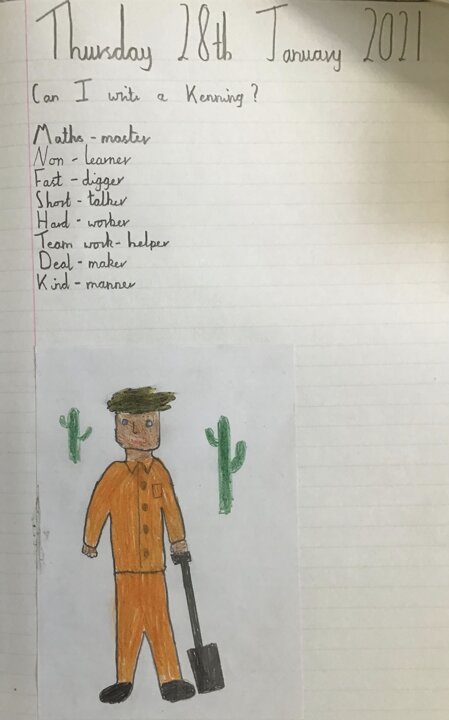 Thursday 28th January 2021
Can I write a Kenning?
Maths - master
Non - learner
Fast - digger
Short - talker
Hard - worker
Team work - helper
Deal - maker
Kind - manner